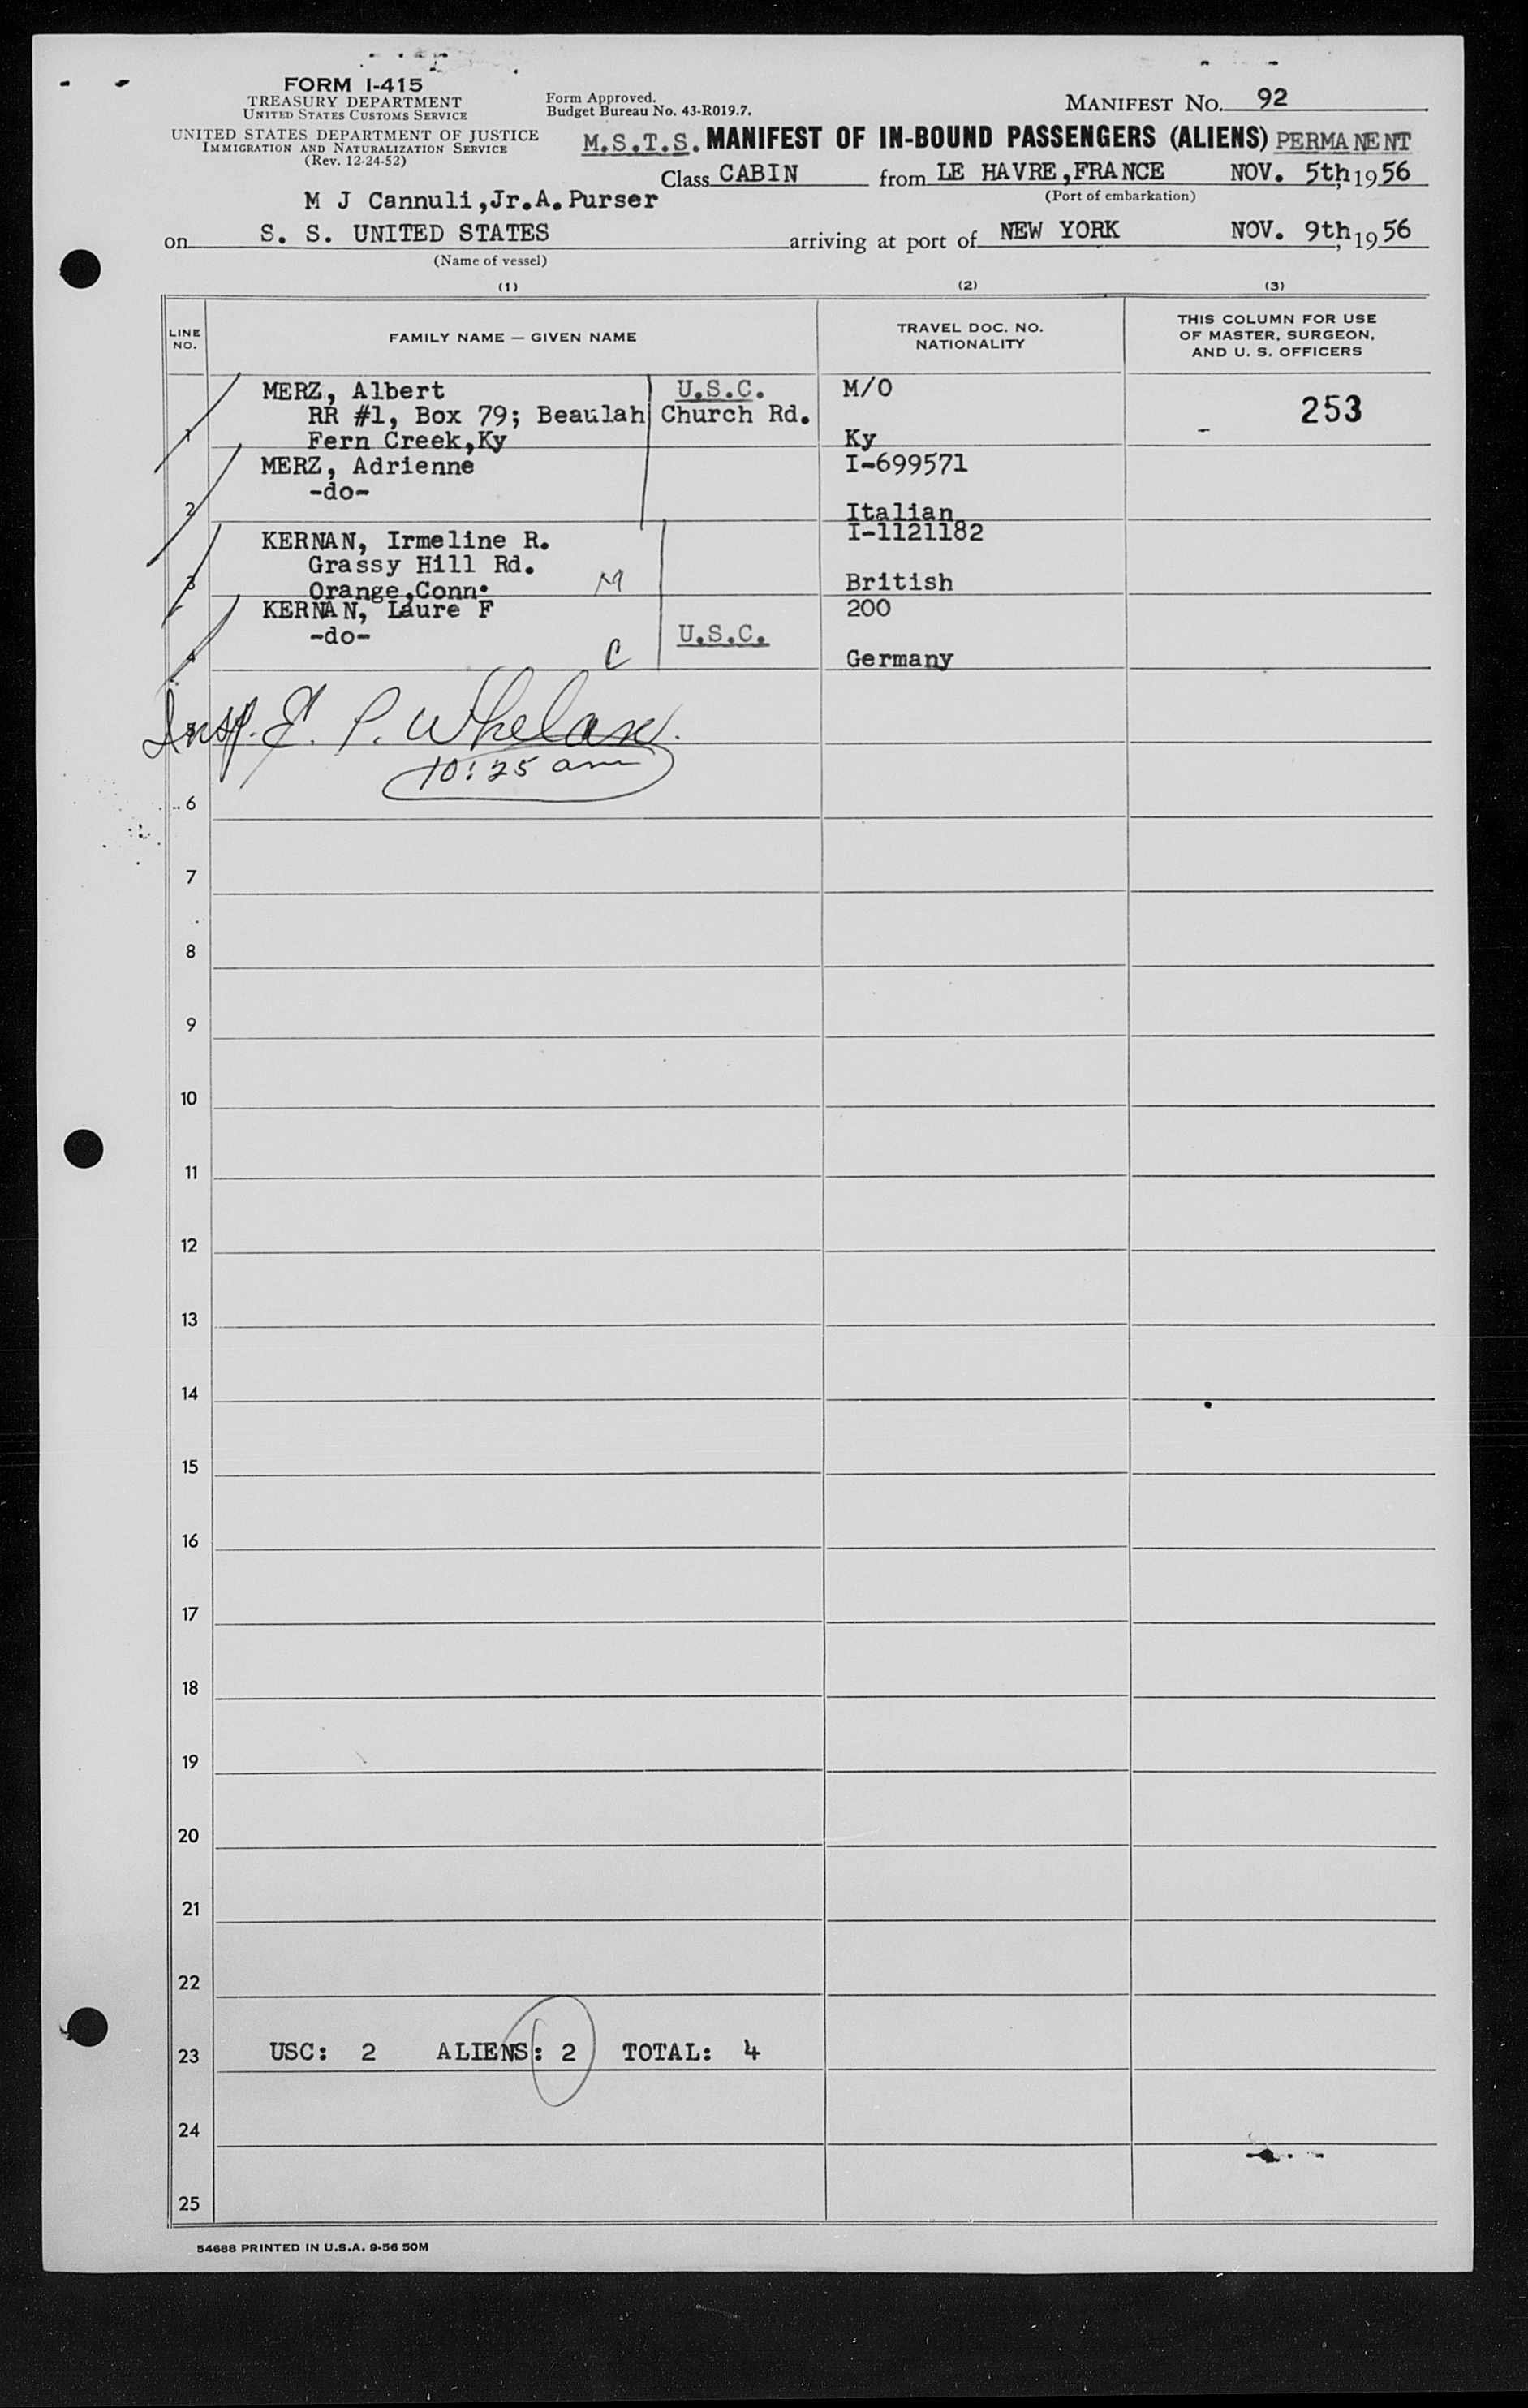 FORM I-415
TREASURY DEPARTMENT
UNITED STATES CUSTOMS SERVICE
UNITED STATES DEPARTMENT OF JUSTICE
IMMIGRATION AND NATURALIZATION SERVICE
(Rev. 12-24-52)
Form Approved.
Budget Bureau No. 43-R019.7.
MANIFEST NO. 92
M.S.T.S. MANIFEST OF IN-BOUND PASSENGERS (ALIENS) PERMANENT
Class CABIN from LE HAVRE,FRANCE NOV. 5th, 1956
(Port of embarkation)
M J Cannuli,Jr.A.Purser
on S. S. UNITED STATES arriving at port of NEW YORK NOV. 9th, 1956
(Name of vessel)
(1) (2) (3)
LINE NO. FAMILY NAME — GIVEN NAME TRAVEL DOC. NO. NATIONALITY THIS COLUMN FOR USE OF MASTER, SURGEON, AND U. S. OFFICERS
MERZ, Albert U.S.C. M/O 253
RR #1, Box 79; Beaulah Church Rd.
1 Fern Creek,Ky Ky
MERZ, Adrienne I-699571
-do-
2 Italian
KERNAN, Irmeline R. I-1121182
Grassy Hill Rd.
3 Orange,Conn. M British
KERNAN, Laure F 200
-do- U.S.C.
4 C Germany
5 Insp. E. P. Whelan.
10:25 am
6
7
8
9
10
11
12
13
14
15
16
17
18
19
20
21
22
23 USC: 2 ALIENS: 2 TOTAL: 4
24
25
54688 PRINTED IN U.S.A. 9-56 50M